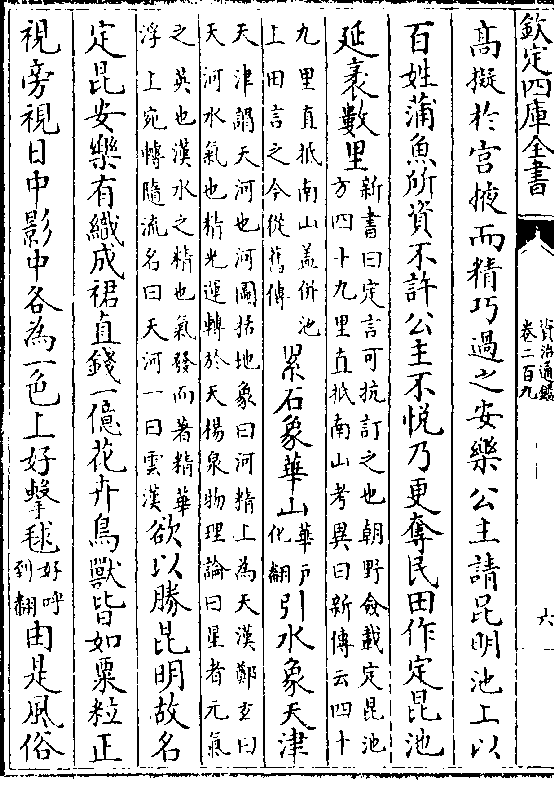 欽定四庫全書
資治通鑑
卷二百九
六
髙擬於宫掖而精巧過之安樂公主請昆明池上以
百姓蒲魚所資不許公主不悦乃更奪民田作定昆池
延袤數里
新書曰定言可抗訂之也朝野僉載定昆池
方四十九里直抵南山考異曰新傳云四十
九里直抵南山盖併池
上田言之今從舊傳
累石象華山
華戶
化翻
引水象天津
天津謂天河也河圖括地象曰河精上為天漢鄭𤣥曰
天河水氣也精光運轉於天楊泉物理論曰星者元氣
之英也漢水之精也氣發而著精華
浮上宛轉隨流名曰天河一曰雲漢
欲以勝昆明故名
定昆安樂有織成裙直錢一億花卉鳥獸皆如粟粒正
視旁視日中影中各為一色上好擊毬
好呼
到翻
由是風俗